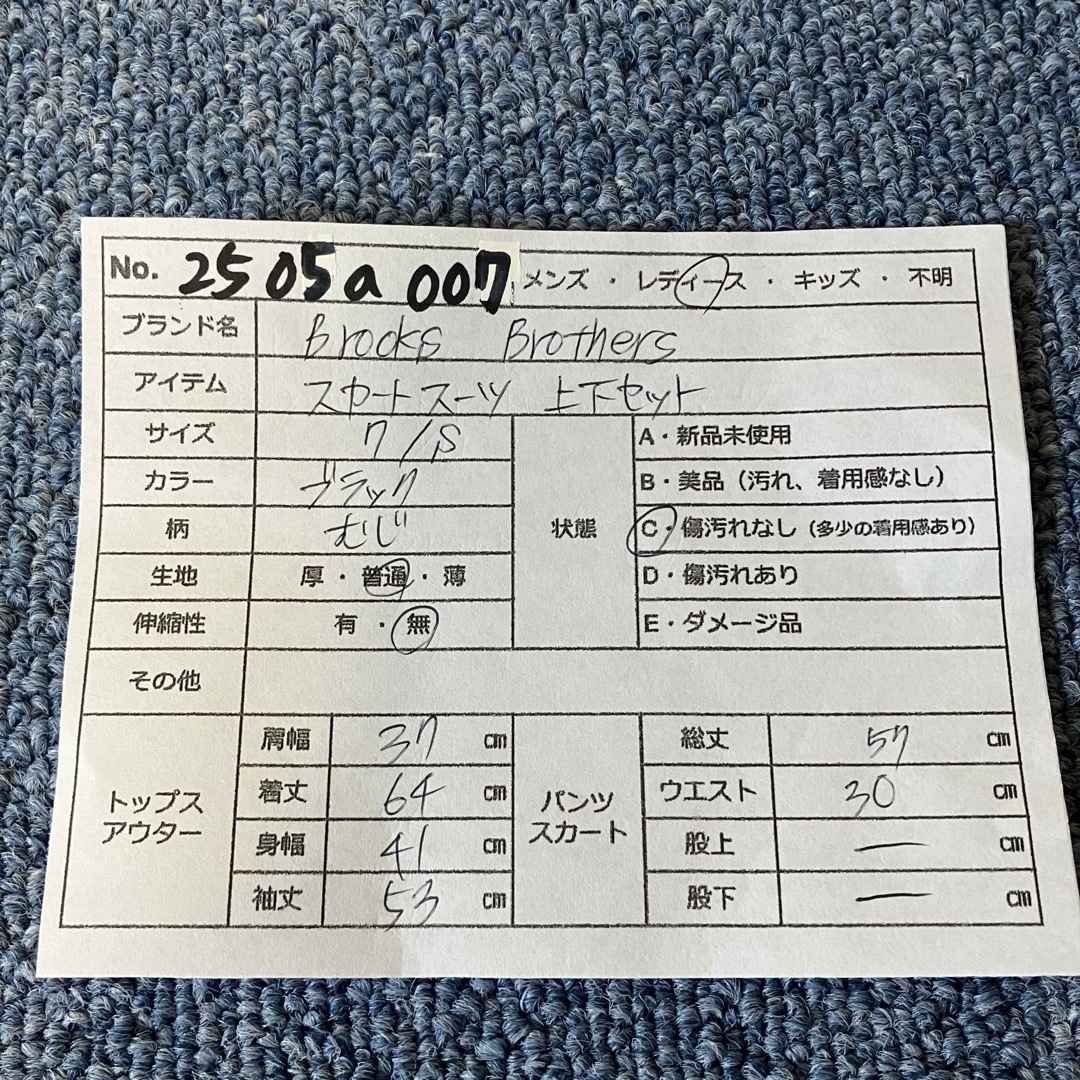 No. 2505a007 メンズ ・ レディース ・ キッズ ・ 不明
ブランド名 Brooks Brothers
アイテム スカートスーツ 上下セット
サイズ 7/S
カラー ブラック
柄 むじ
生地 厚・普通・薄
伸縮性 有・無
状態
A・新品未使用
B・美品（汚れ、着用感なし）
C・傷汚れなし（多少の着用感あり）
D・傷汚れあり
E・ダメージ品
その他
トップス
アウター
肩幅 37 cm
着丈 64 cm
身幅 41 cm
袖丈 53 cm
パンツ
スカート
総丈 57 cm
ウエスト 30 cm
股上 ー cm
股下 ー cm